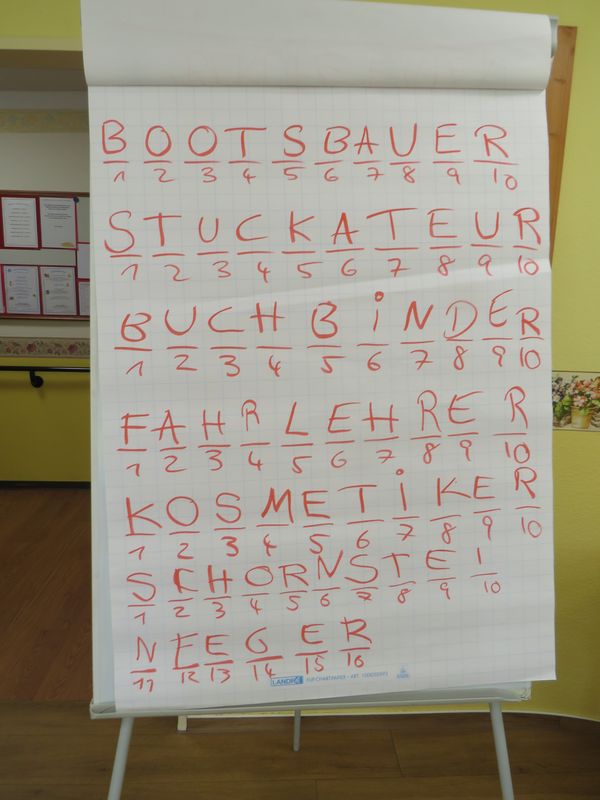 B O O T S B A U E R
1 2 3 4 5 6 7 8 9 10
S T U C K A T E U R
1 2 3 4 5 6 7 8 9 10
B U C H B i N D E R
1 2 3 4 5 6 7 8 9 10
F A H R L E H R E R
1 2 3 4 5 6 7 8 9 10
K O S M E T i K E R
1 2 3 4 5 6 7 8 9 10
S C H O R N S T E I
1 2 3 4 5 6 7 8 9 10
N F E G E R
11 12 13 14 15 16
LANDRÉ FLIPCHARTPAPIER · ART.